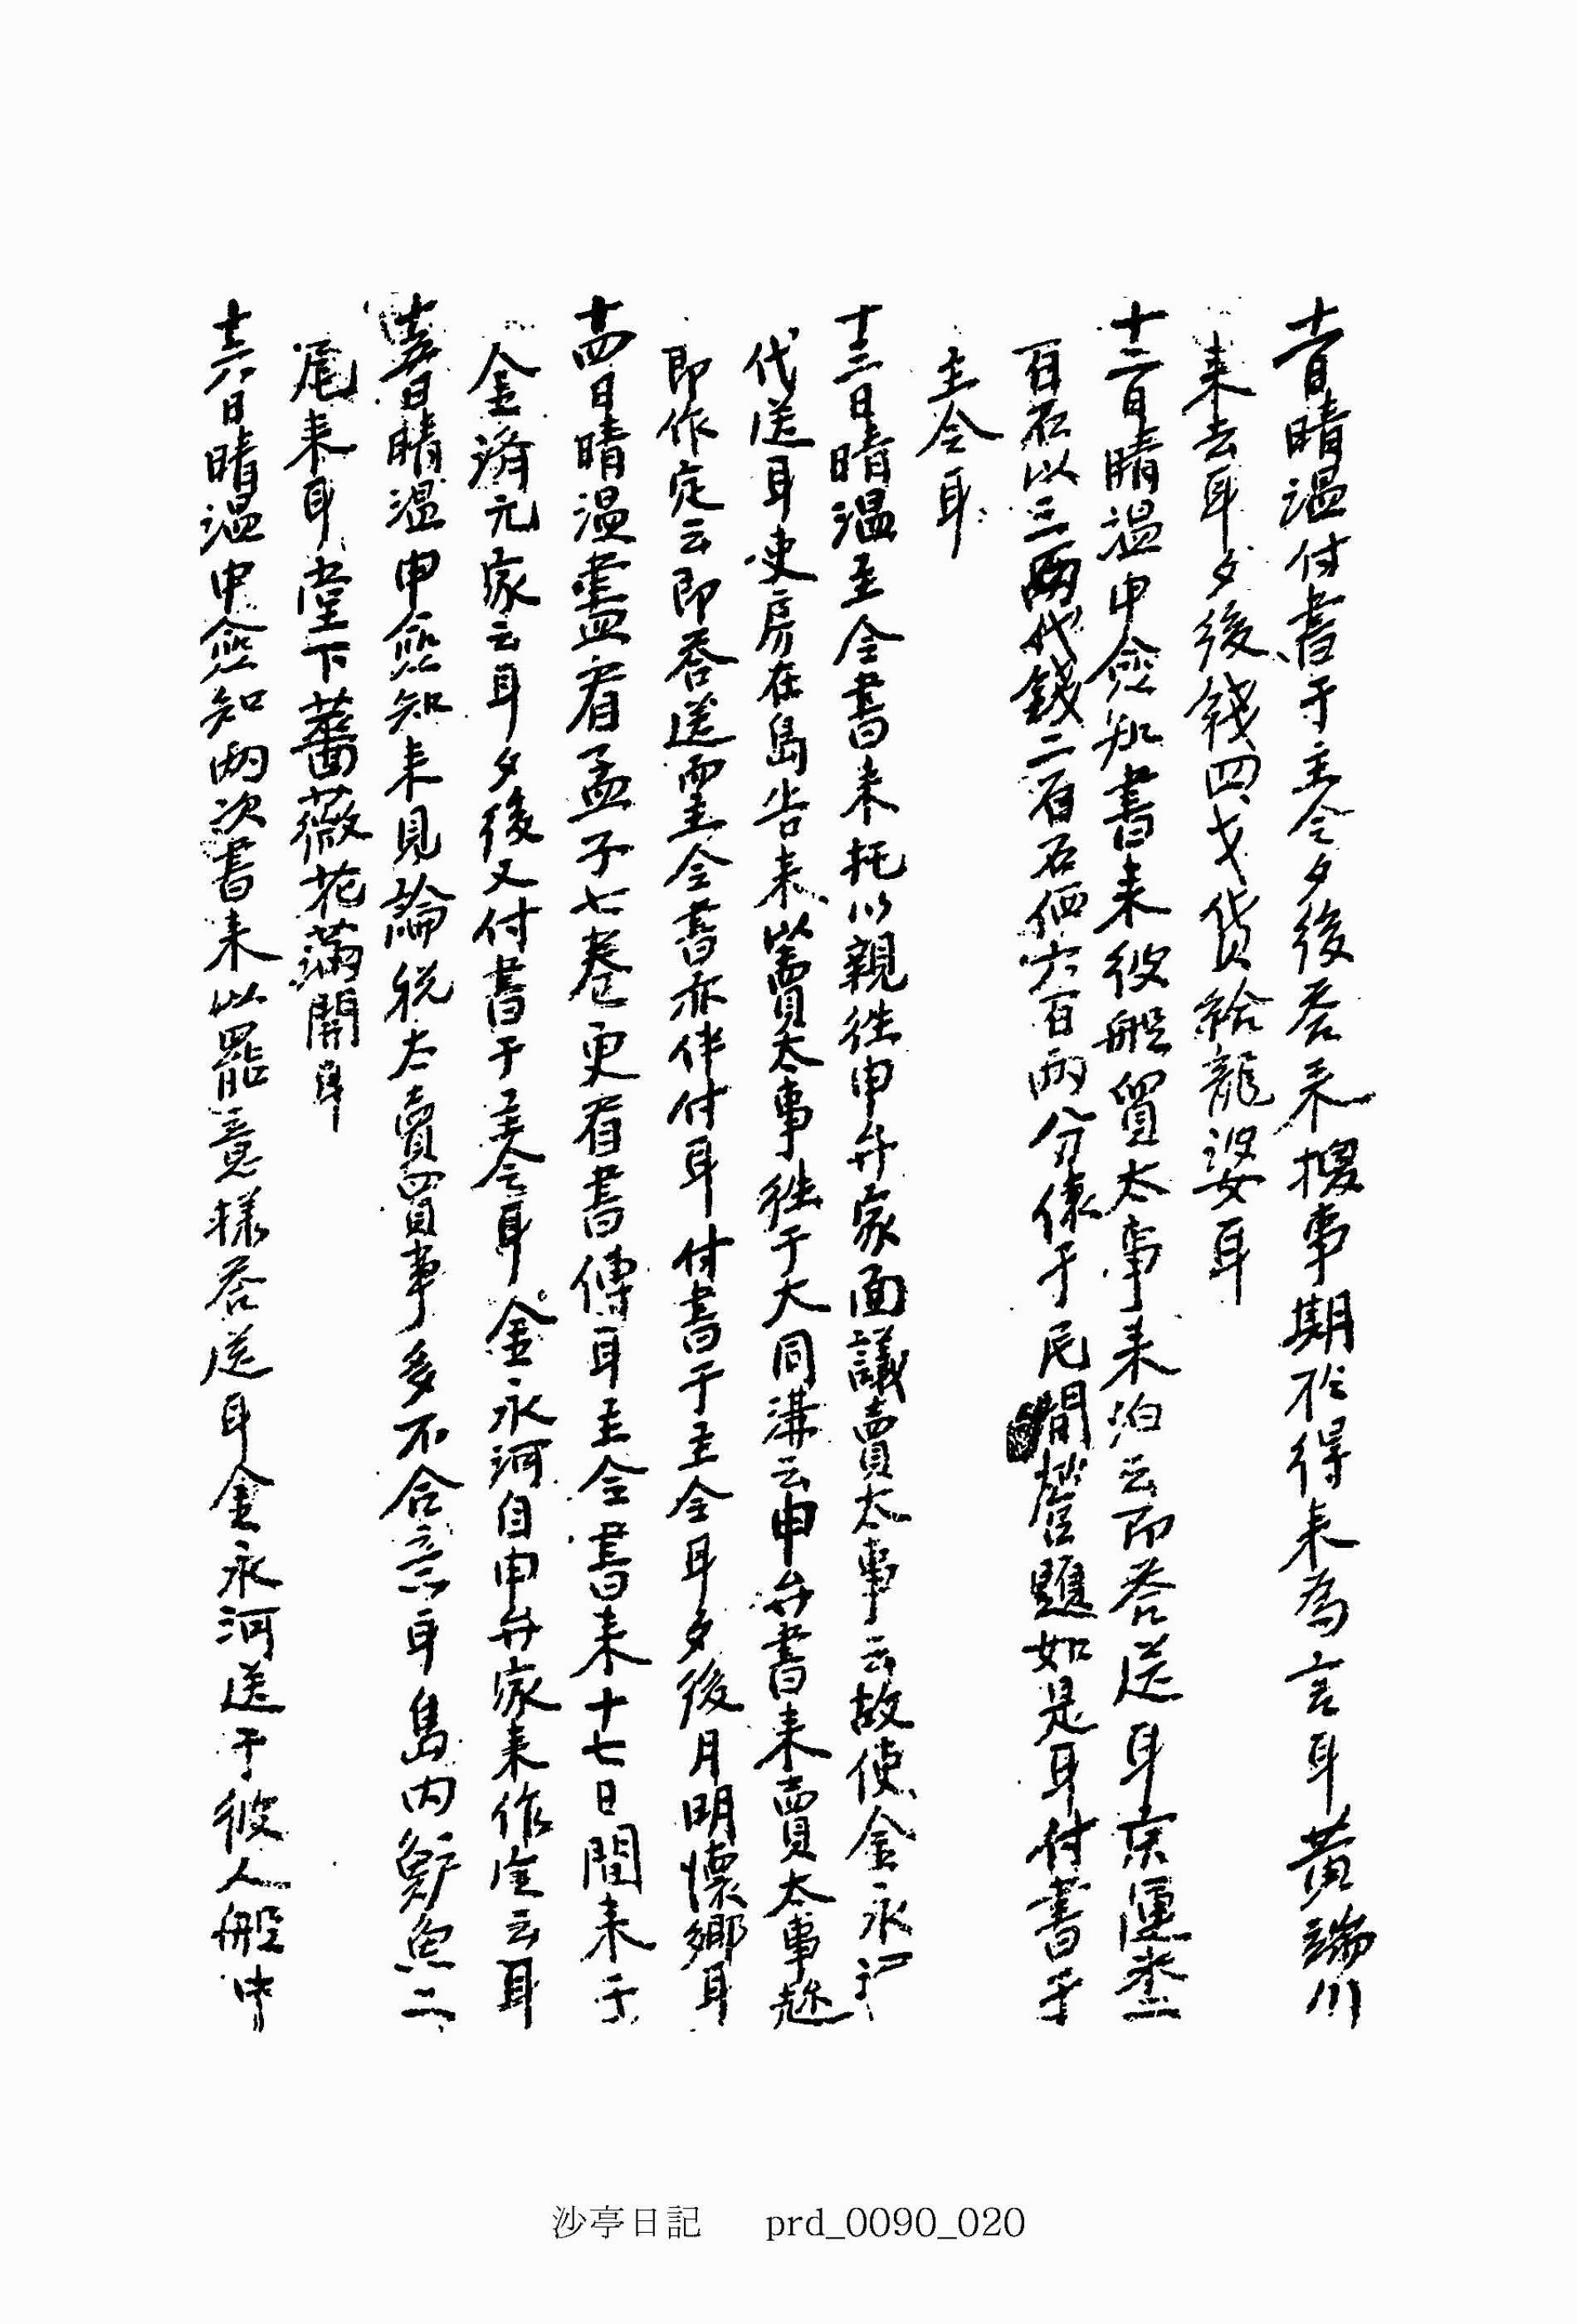 十一日晴温付書于主令夕後答来搜事期於得来為言耳黄端川
来去耳夕後錢四戈貸給龍婆耳
十二日晴温申僉知書来彼船貿太事来泊云即答送耳京運米二
百石以三両代錢二百石価六百両分俵于民間營題如是耳付書于
主令耳
十三日晴温主令書来托以親往申弁家面議賣太事云故使金永河
代送耳使房在島告来以賣太事往于大同溝云申弁書来賣太事趂
即作定云即答送而主令書亦伴付耳付書于主令耳夕後月明懷鄉耳
十四日晴温盡看孟子七卷更看書傳耳主令書来十七日間来于
金濟元家云耳夕後又付書于主令耳金永河自申弁家来作定云耳
十五日晴温申僉知来見論税太賣買事多不合意耳島内鱸魚二
尾来耳堂下薔薇花滿開耳
十六日晴温申僉知両次書来以罷意様答送耳金永河送于彼人船中
沙亭日記 prd_0090_020